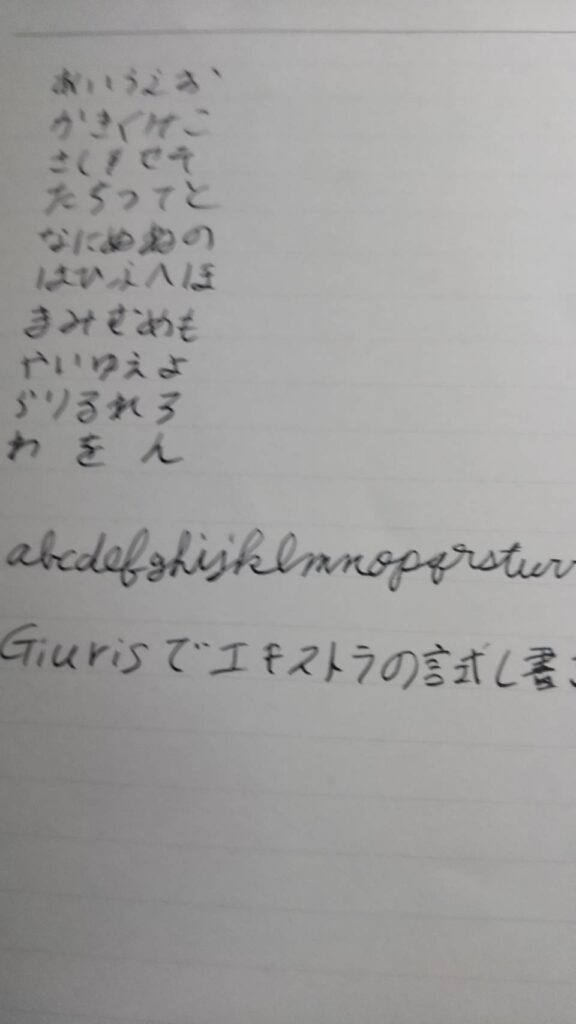 あいうえお
かきくけこ
さしすせそ
たちつてと
なにぬねの
はひふへほ
まみむめも
やいゆえよ
らりるれろ
わ を ん
abcdefghijklmnopqrstuv
Giurisでエキストラの試し書き